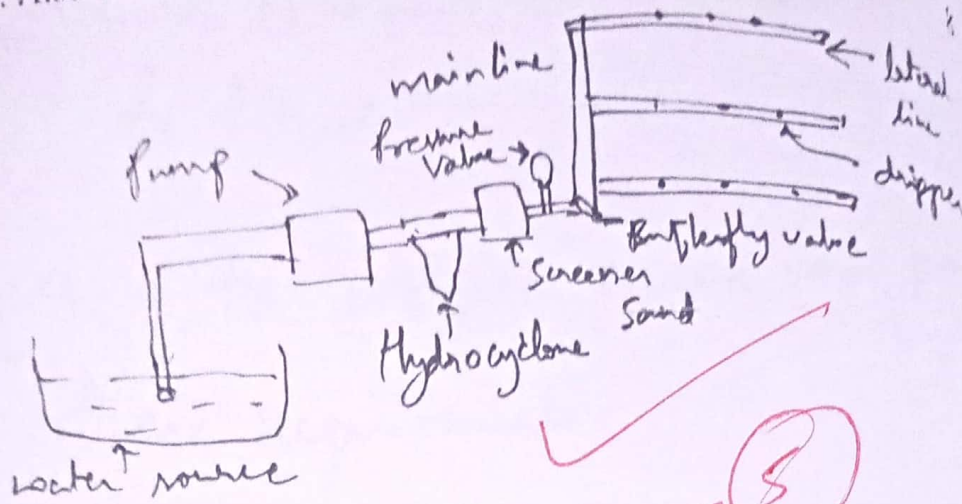 main line
lateral
line
Pressure
Valve
Pump
dripper
Butterfly valve
Screener
Sand
Hydrocyclone
water source
8